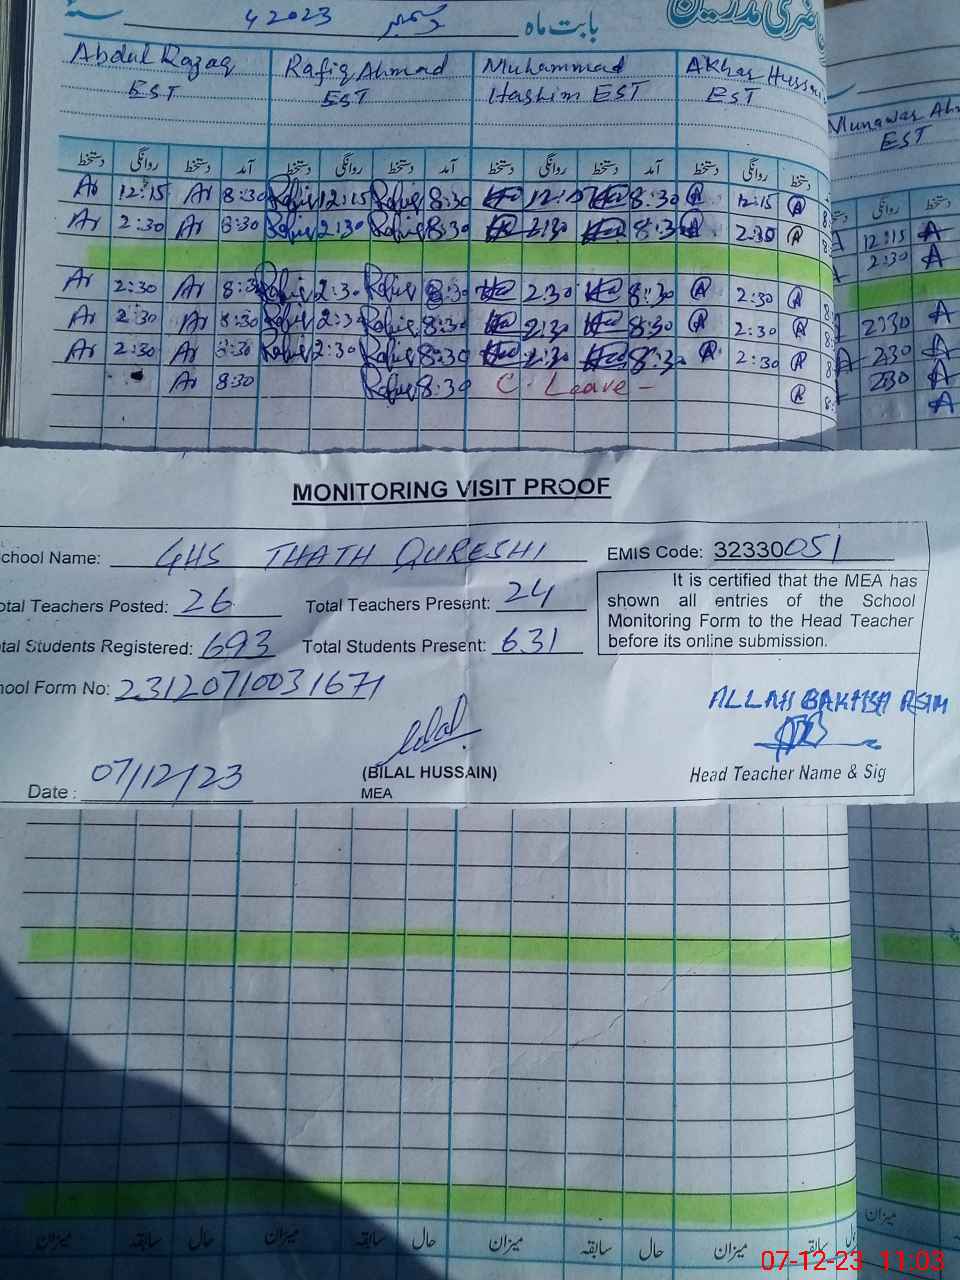 بابت ماہ دسمبر 2023ء
Abdul Razaq
EST
Rafiq Ahmad
EST
Muhammad
Hashim EST
Akhar Hussai
EST
Munawar Ah
EST
دستخط روانگی دستخط آمد دستخط روانگی دستخط آمد دستخط روانگی دستخط آمد دستخط روانگی دستخط
دستخط روانگی
Ar 12:15 Ar 8:30 Rafiq 12:15 Rafiq 8:30 12:15 8:30 A 12:15 A
12:15 A
Ar 2:30 Ar 8:30 Rafiq 2:30 Rafiq 8:30 2:30 8:30 A 2:30 A
2:30 A
Ar 2:30 Ar 8:30 Rafiq 2:30 Rafiq 8:30 2:30 8:30 A 2:30 A
2:30 A
Ar 2:30 Ar 8:30 Rafiq 2:30 Rafiq 8:30 2:30 8:30 A 2:30 A
A 230 A
Ar 2:30 Ar 8:30 Rafiq 2:30 Rafiq 8:30 2:30 8:30 A 2:30 A
230 A
Ar 8:30 Rafiq 8:30 C. Leave - A
A
MONITORING VISIT PROOF
chool Name: GHS THATH QURESHI
EMIS Code: 32330051
otal Teachers Posted: 26 Total Teachers Present: 24
tal Students Registered: 693 Total Students Present: 631
It is certified that the MEA has
shown all entries of the School
Monitoring Form to the Head Teacher
before its online submission.
hool Form No: 23120710031671
ALLAH BAKHSH ASIM
Bilal
(BILAL HUSSAIN)
MEA
Head Teacher Name & Sig
Date : 07/12/23
میزان سابقہ حال میزان سابقہ حال میزان سابقہ حال میزان سابقہ
میزان
07-12-23 11:03